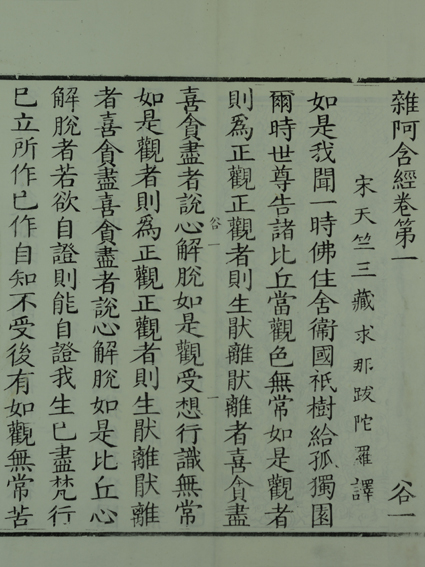 雜阿含經卷第一
谷一
宋天竺三藏求那跋陀羅譯
如是我聞一時佛住舍衛國祇樹給孤獨園
爾時世尊告諸比丘當觀色無常如是觀者
則為正觀正觀者則生猒離猒離者喜貪盡
谷一
一
喜貪盡者說心解脫如是觀受想行識無常
如是觀者則為正觀正觀者則生猒離猒離
者喜貪盡喜貪盡者說心解脫如是比丘心
解脫者若欲自證則能自證我生已盡梵行
已立所作已作自知不受後有如觀無常苦